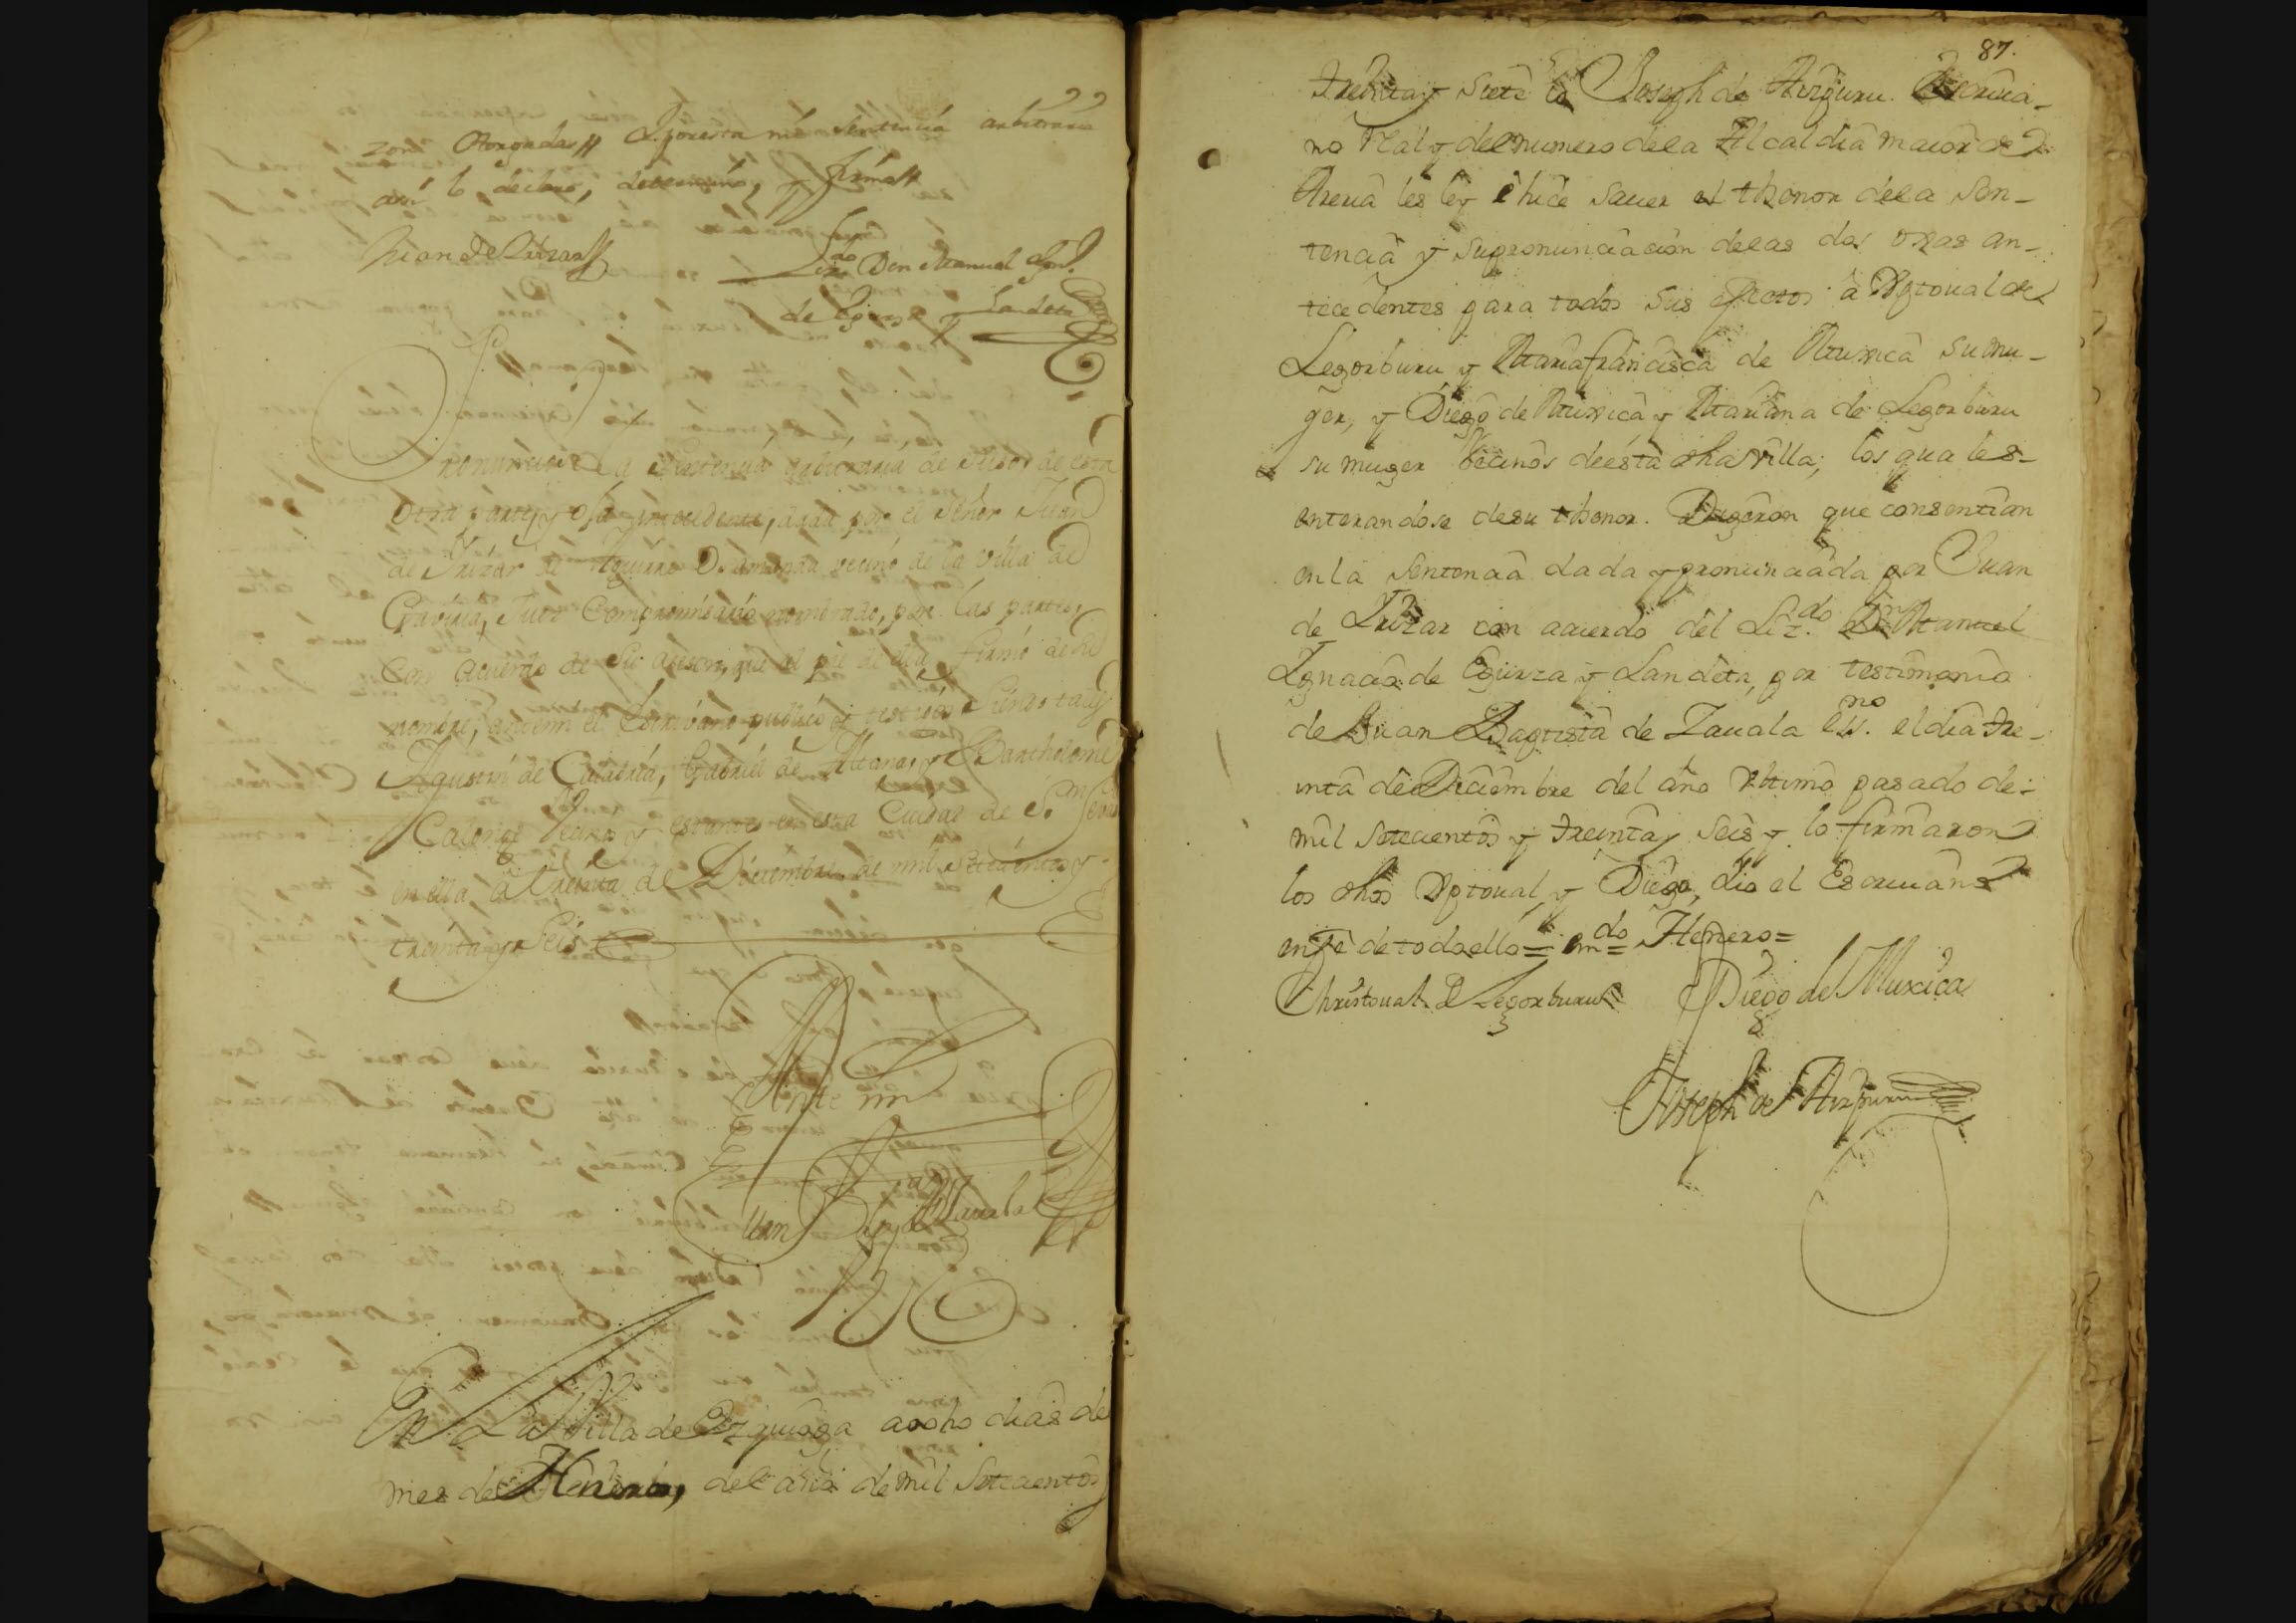 zon otorgadas // Y por esta mi sentencia arbitraria
asi lo declaro, determino, y firmo //
Juan de Irizar
Liz.do Don Manuel Ign.o
de Egurza y Landeta
Pronunciose la Sentencia arbitraria de suso de esta
otra parte, y oja precedente, dada por el Señor Juan
de Irizar de Aguirre vecino de la villa de
Gaviria, Juez Compromisario nombrado, por las partes,
con acuerdo de su asesor, que al pie de ella firmó de su
nombre, ante mi el Escribano publico y testigos siendo tales
Agustin de Calabria, Gabriel de y Bartholome
Calonge Vecino y estantes en esta Ciudad de S.n Sevas
en ella, à treinta de Diciembre de mil setecientos y
treinta y Seis
Ante mi
Juan Bap.ta de Zauala
En La Villa de Ezquioga a ocho dias del
mes de Henero, del año de mil Setecientos
87.
treinta y siete Yo Joseph de Aizpuru Escriua-
no Real y del numero de la Alcaldia maior de
Areria les ley è hice sauer el thenor de la Sen-
tencia y su pronunciacion de las dos ojas an-
tecedentes para todos sus efectos à Xptoual de
Legorburu y Maria francisca de Muxica su mu-
ger, y Diego de Muxica y Mariana de Legorburu
su muger Vecinos de ésta dha villa; los quales-
enterandose de su thenor. Dixeron que consentian
en la sentencia dada y pronunciada por Juan
de Irizar con acuerdo del Liz.do Dn Manuel
Ignacio de Egurza y Landeta, por testimonio
de Juan Baptista de Zauala ess.no el dia tre-
inta de Diciembre del año vltimo pasado de
mil setecientos y treinta y seis y lo firmaron
los dhos Xptoual, y Diego, e Yo el Escriuano
en fè de todo ello = em.do = Henero =
Christoual de Legorburu Diego de Muxica
Joseph de Aizpuru